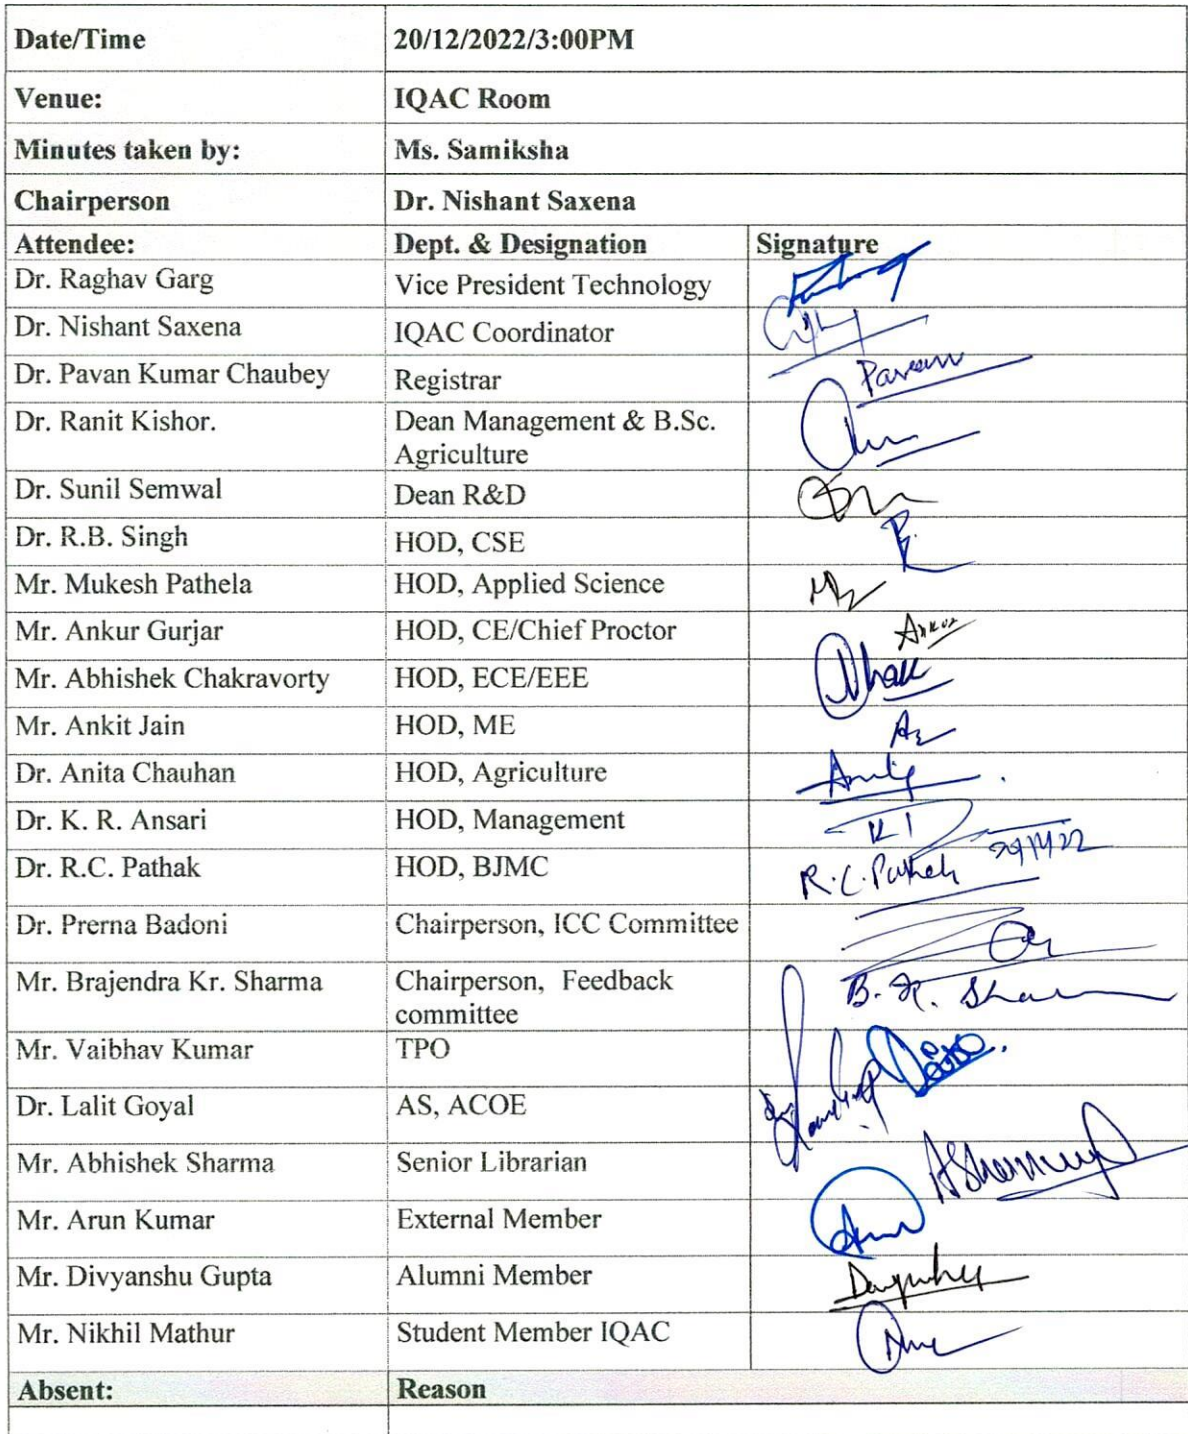 Date/Time 20/12/2022/3:00PM
Venue: IQAC Room
Minutes taken by: Ms. Samiksha
Chairperson Dr. Nishant Saxena
Attendee: Dept. & Designation Signature
Dr. Raghav Garg Vice President Technology
Dr. Nishant Saxena IQAC Coordinator
Dr. Pavan Kumar Chaubey Registrar
Dr. Ranit Kishor. Dean Management & B.Sc.
Agriculture
Dr. Sunil Semwal Dean R&D
Dr. R.B. Singh HOD, CSE
Mr. Mukesh Pathela HOD, Applied Science
Mr. Ankur Gurjar HOD, CE/Chief Proctor Ankur
Mr. Abhishek Chakravorty HOD, ECE/EEE
Mr. Ankit Jain HOD, ME
Dr. Anita Chauhan HOD, Agriculture
Dr. K. R. Ansari HOD, Management
Dr. R.C. Pathak HOD, BJMC R.C. Pathak
Dr. Prerna Badoni Chairperson, ICC Committee
Mr. Brajendra Kr. Sharma Chairperson, Feedback
committee
Mr. Vaibhav Kumar TPO
Dr. Lalit Goyal AS, ACOE
Mr. Abhishek Sharma Senior Librarian
Mr. Arun Kumar External Member
Mr. Divyanshu Gupta Alumni Member
Mr. Nikhil Mathur Student Member IQAC
Absent: Reason